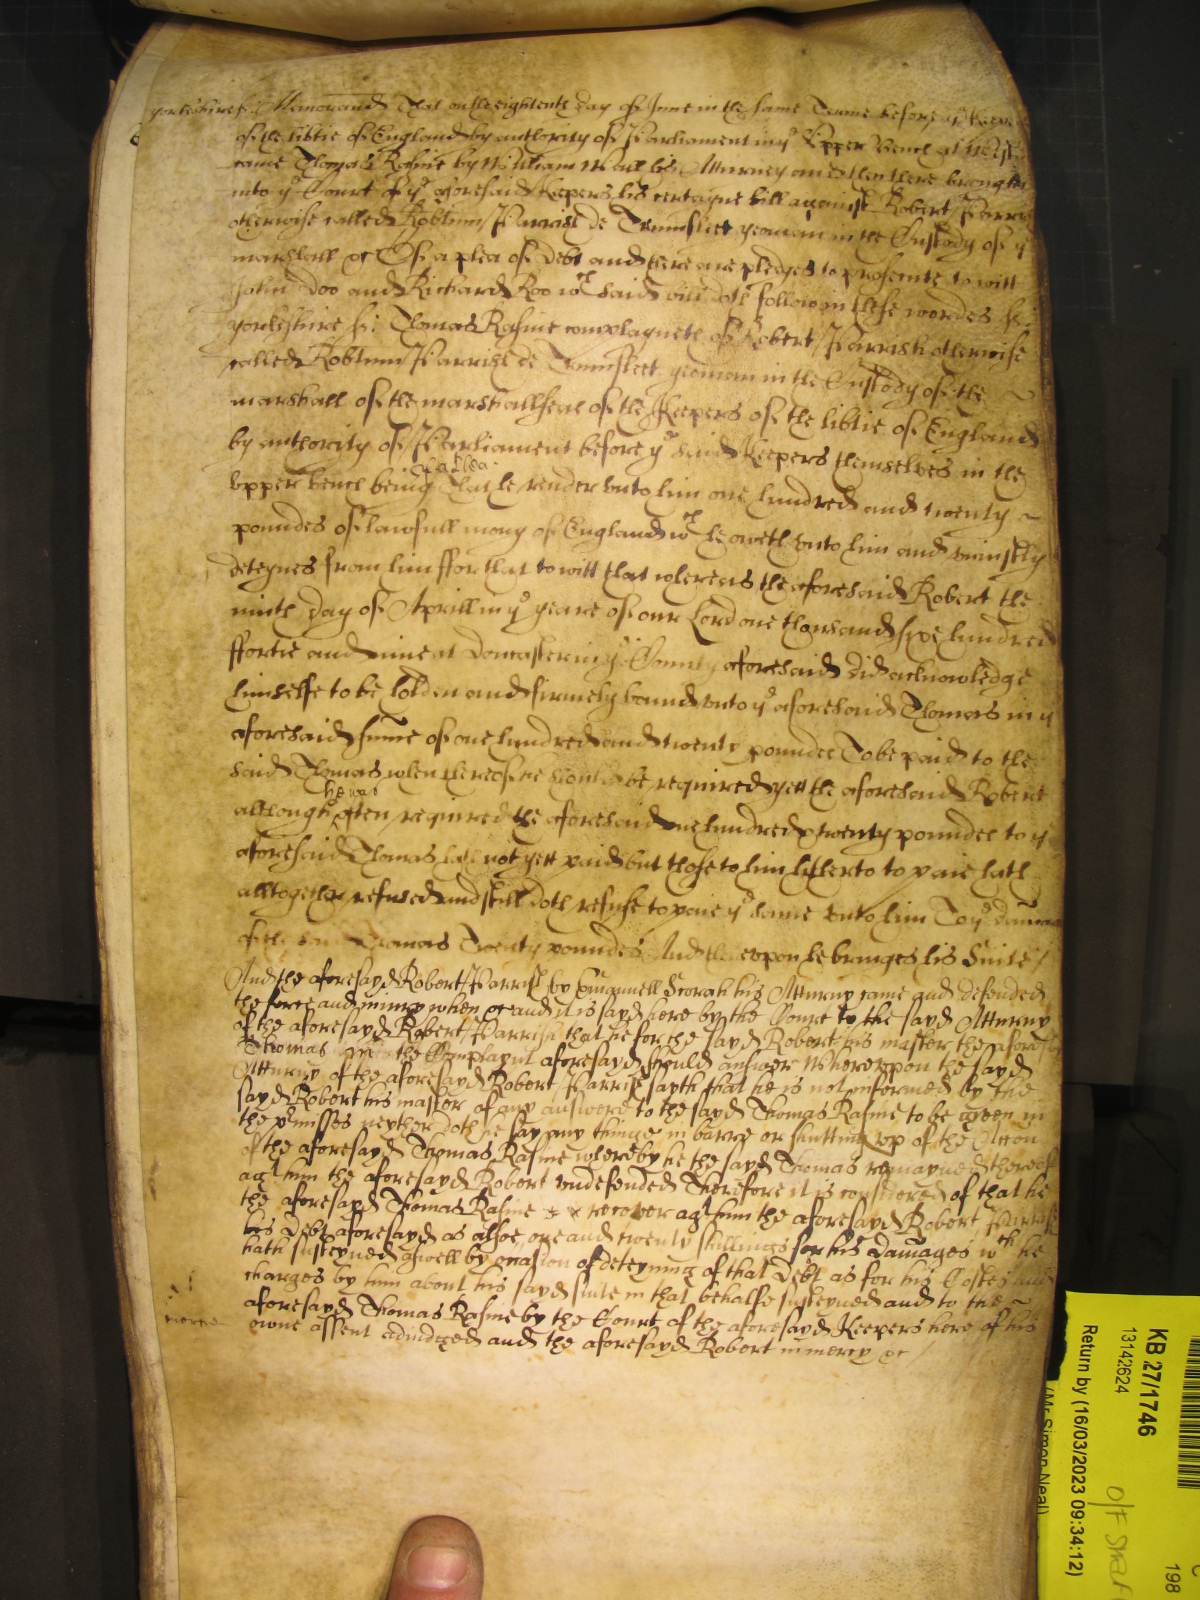 yorkeshire ss: Memorand That on the eightenth day of June in the same Terme before ye Keepers
of the libtie of England by authority of Parliament in ye Vpper Bench at Westm
came Thomas Rasine by William his Attorney and then there brought
into ye Court of ye aforesaid Keepers his certayne bill against Robert Parrish
otherwise called Robtum Parrish de yeoman in the Custody of ye
marshall &c Of a plea of debt and there are pledges to prosecute to witt
John Doo and Richard Roo wch said bill doth follow in these wordes ss:
yorkeshire ss: Thomas Rasine complayneth of Robert Parrish otherwise
called Robtum Parrish de yeoman in the Custody of the
marshall of the marshallsea of the Keepers of the libtie of England
by authority of Parliament before ye said Keepers themselves in the
vpper bench being of a plea That he render vnto him one hundred and twenty
poundes of lawfull mony of England wch he oweth vnto him and vniustly
deteynes from him ffor that to witt that whereas the aforesaid Robert the
ninth day of Aprill in ye yeare of our Lord one thousand sixe hundred
ffortie and nine at Doncaster in ye County aforesaid did acknowledge
himselfe to be holden and firmely bound vnto ye aforesaid Thomas in ye
aforesaid sume of one hundred and twenty poundes To be paid to the
said Thomas when thereof he should be required yett the aforesaid Robert
although he was often required the aforesaid one hundred & twenty poundes to ye
aforesaid Thomas hath not yett paid but those to him hitherto to paie hath
alltogether refused and still doth refuse to paie ye same vnto him To ye damage
of the said Thomas Twenty poundes And therevpon he bringes his Suite /
And the aforesayd Robert Parrish by Emanuell Scorah his Atturny came and defended
the force and iniury when &c and it is sayd here by the Court to the sayd Atturny
of the aforesayd Robert Parrish that he for the sayd Robert his master the aforesayd
Thomas the Complaynt aforesayd should answer Wherevppon the sayd
Atturny of the aforesayd Robert Parrish sayth that he is not informed by the
sayd Robert his master of any answere to the sayd Thomas Rasine to be geven in
the pmisses neyther doth he say any thinge in barre or shutting vp of the Accon
of the aforesayd Thomas Rasine whereby he the sayd Thomas remayned thereof
agt him the aforesayd Robert vndefended Therefore it is considered of that he
the aforesayd Thomas Rasine recover agt him the aforesayd Robert Parrish
his Debt aforesayd as alsoe one and twenty shillings for his damages wch he
hath susteyned aswell by occasion of deteyning of that Debt as for his Costes and
charges by him about his sayd suite in that behalfe susteyned and to the
aforesayd Thomas Rasine by the Court of the aforesayd Keepers here of his
owne assent adiudged and the aforesayd Robert in mercy &c /
KB 27/1746
13142624
Return by (16/03/2023 09:34:12)
(Mr Simon Neal)
198